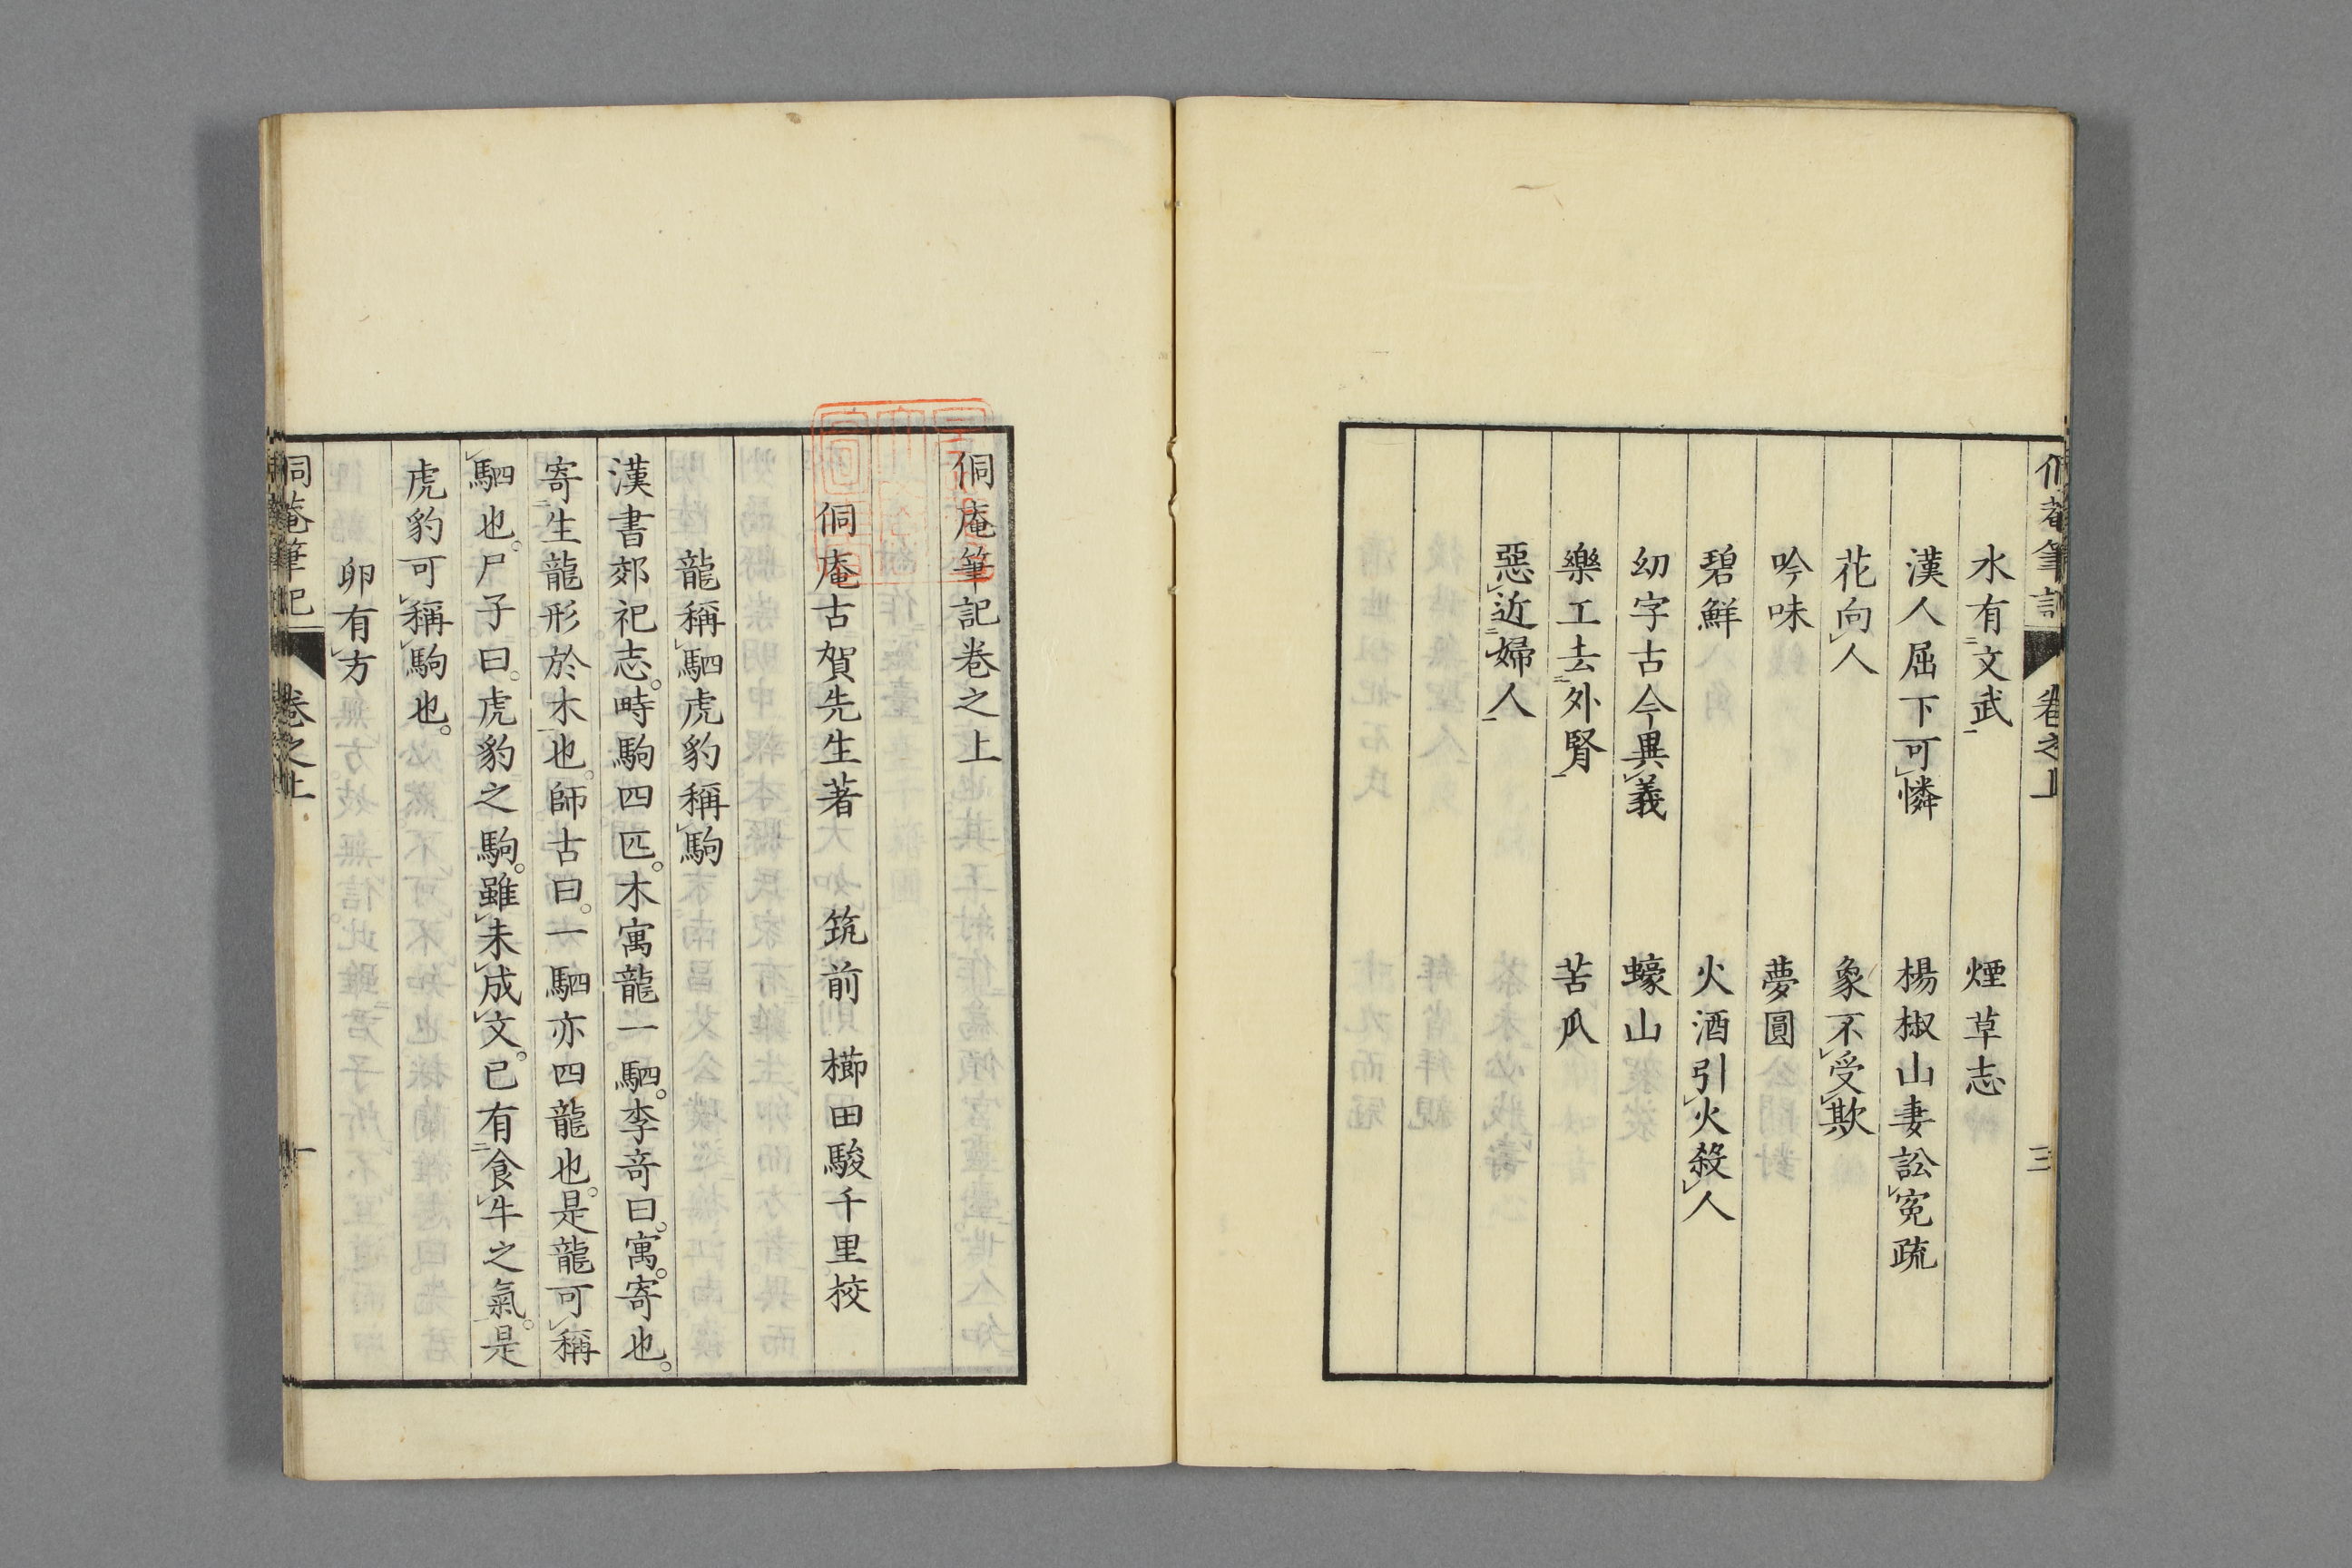 侗菴筆記 卷之上 三
水有文武 煙草志
漢人屈下可憐 楊椒山妻訟寃疏
花向人 象不受欺
吟味 夢圓
碧鮮 火酒引火殺人
幼字古今異義 蠔山
樂工去外腎 苦瓜
惡近婦人
侗庵筆記卷之上
侗庵古賀先生著 筑前 櫛田駿千里挍
龍稱駟虎豹稱駒
漢書郊祀志。畤駒四匹。木寓龍一駟。李竒曰。寓。寄也。
寄生龍形於木也。師古曰。一駟亦四龍也。是龍可稱
駟也。尸子曰。虎豹之駒。雖未成文。已有食牛之氣。是
虎豹可稱駒也。
卵有方
侗菴筆記 卷之上 一